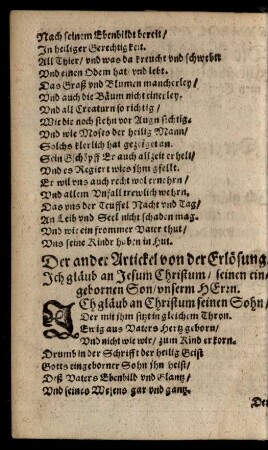 Nach seinem Ebenbildt bereit/
In heiliger Gerechtigkeit.
All Thier/ vnd was da kreucht vnd schwebt
Vnd einen Odem hat/ vnd lebt.
Das Graß vnd Blumen mancherley/
Vnd auch die Bäum nicht einerley.
Vnd all Creaturn so richtig/
Wie die noch stehn vor Augn sichtig.
Vnd wie Moses der heilig Mann/
Solchs klerlich hat gezeiget an.
Sein Gschöpff Er auch all zeit erhelt/
Vnd es Regiert wies ihm gfellt.
Er wil vns auch recht wol ernehrn/
Vnd allem Vnfall trewlich wehrn.
Das vns der Teuffel Nacht vnd Tag/
An Leib vnd Seel nicht schaden mag.
Vnd wie ein frommer Vater thut/
Vns seine Kindr haben in Hut.
Der ander Artickel von der Erlösung.
Ich gläub an Jesum Christum/ seinen ein-
gebornen Son/ vnserm HErrn.
ICh gläub an Christum seinen Sohn/
Der mit ihm sitzt in gleichem Thron.
Ewig aus Vaters Hertz geborn/
Vnd nicht wie wir/ zum Kind erkorn.
Drumb in der Schrifft der heilig Geist
Gotts eingeborner Sohn ihn heist/
Deß Vaters Ebenbild vnd Glantz/
Vnd seines Wesens gar vnd gantz.